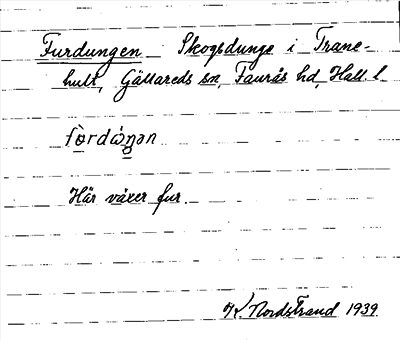 Furdungen Skogsdunge i Trane-
hult, Gällareds sn, Faurås hd, Hall. l.
Här växer fur.
K. Nordstrand 1939